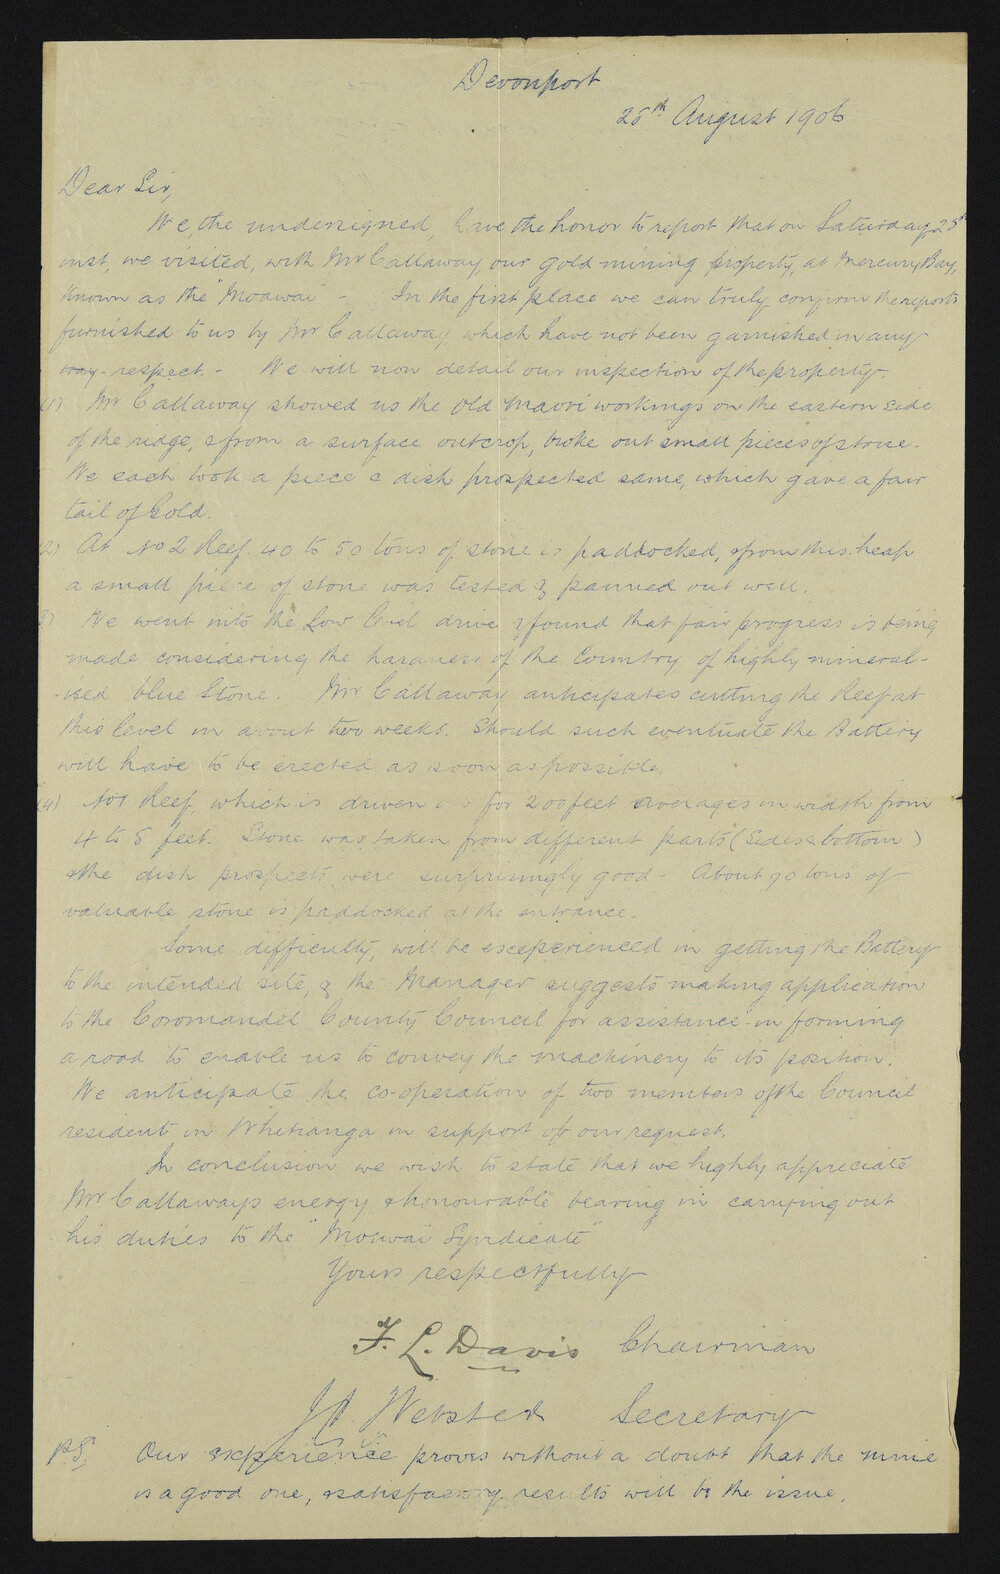 Devonport
25th August 1906
Dear Sir,
We, the undersigned, have the honor to report that on Saturday, 25th
inst, we visited, with Mr Callaway, our gold mining property, at Mercury Bay,
known as the "Moawai" - In the first place we can truly confirm the reports
furnished to us by Mr Callaway which have not been garnished in any
way respect. - We will now detail our inspection of the property.
(1) Mr Callaway showed us the old Maori workings on the eastern side
of the ridge, & from a surface outcrop, broke out small pieces of stone.
We each took a piece & dish prospected same, which gave a fair
tail of Gold.
(2) At No 2 Reef 40 to 50 tons of stone is paddocked, & from this heap
a small piece of stone was tested & panned out well.
(3) We went into the Low level drive & found that fair progress is being
made considering the hardness of the Country of highly mineral-
-ised blue stone. Mr Callaway anticipates cutting the Reef at
this level in about two weeks. Should such eventuate the Battery
will have to be erected as soon as possible.
(4) No 1 Reef, which is driven in for 200 feet averages in width from
4 to 8 feet. Stone was taken from different parts (sides & bottom)
& the dish prospects were surprisingly good - About 70 tons of
valuable stone is paddocked at the entrance.
Some difficulty, will be exceperienced in getting the Battery
to the intended site, & the Manager suggests making application
to the Coromandel County Council for assistance in forming
a road to enable us to convey the machinery to its position.
We anticipate the co-operation of two members of the Council
resident in Whitianga in support of our request.
In conclusion we wish to state that we highly appreciate
Mr Callaways energy & honourable bearing in carrying out
his duties to the "Moawai Syndicate"
Yours respectfully
F. L. Davis Chairman
Webster Secretary
P.S. Our experience proves without a doubt that the mine
is a good one, & satisfactory results will be the issue.